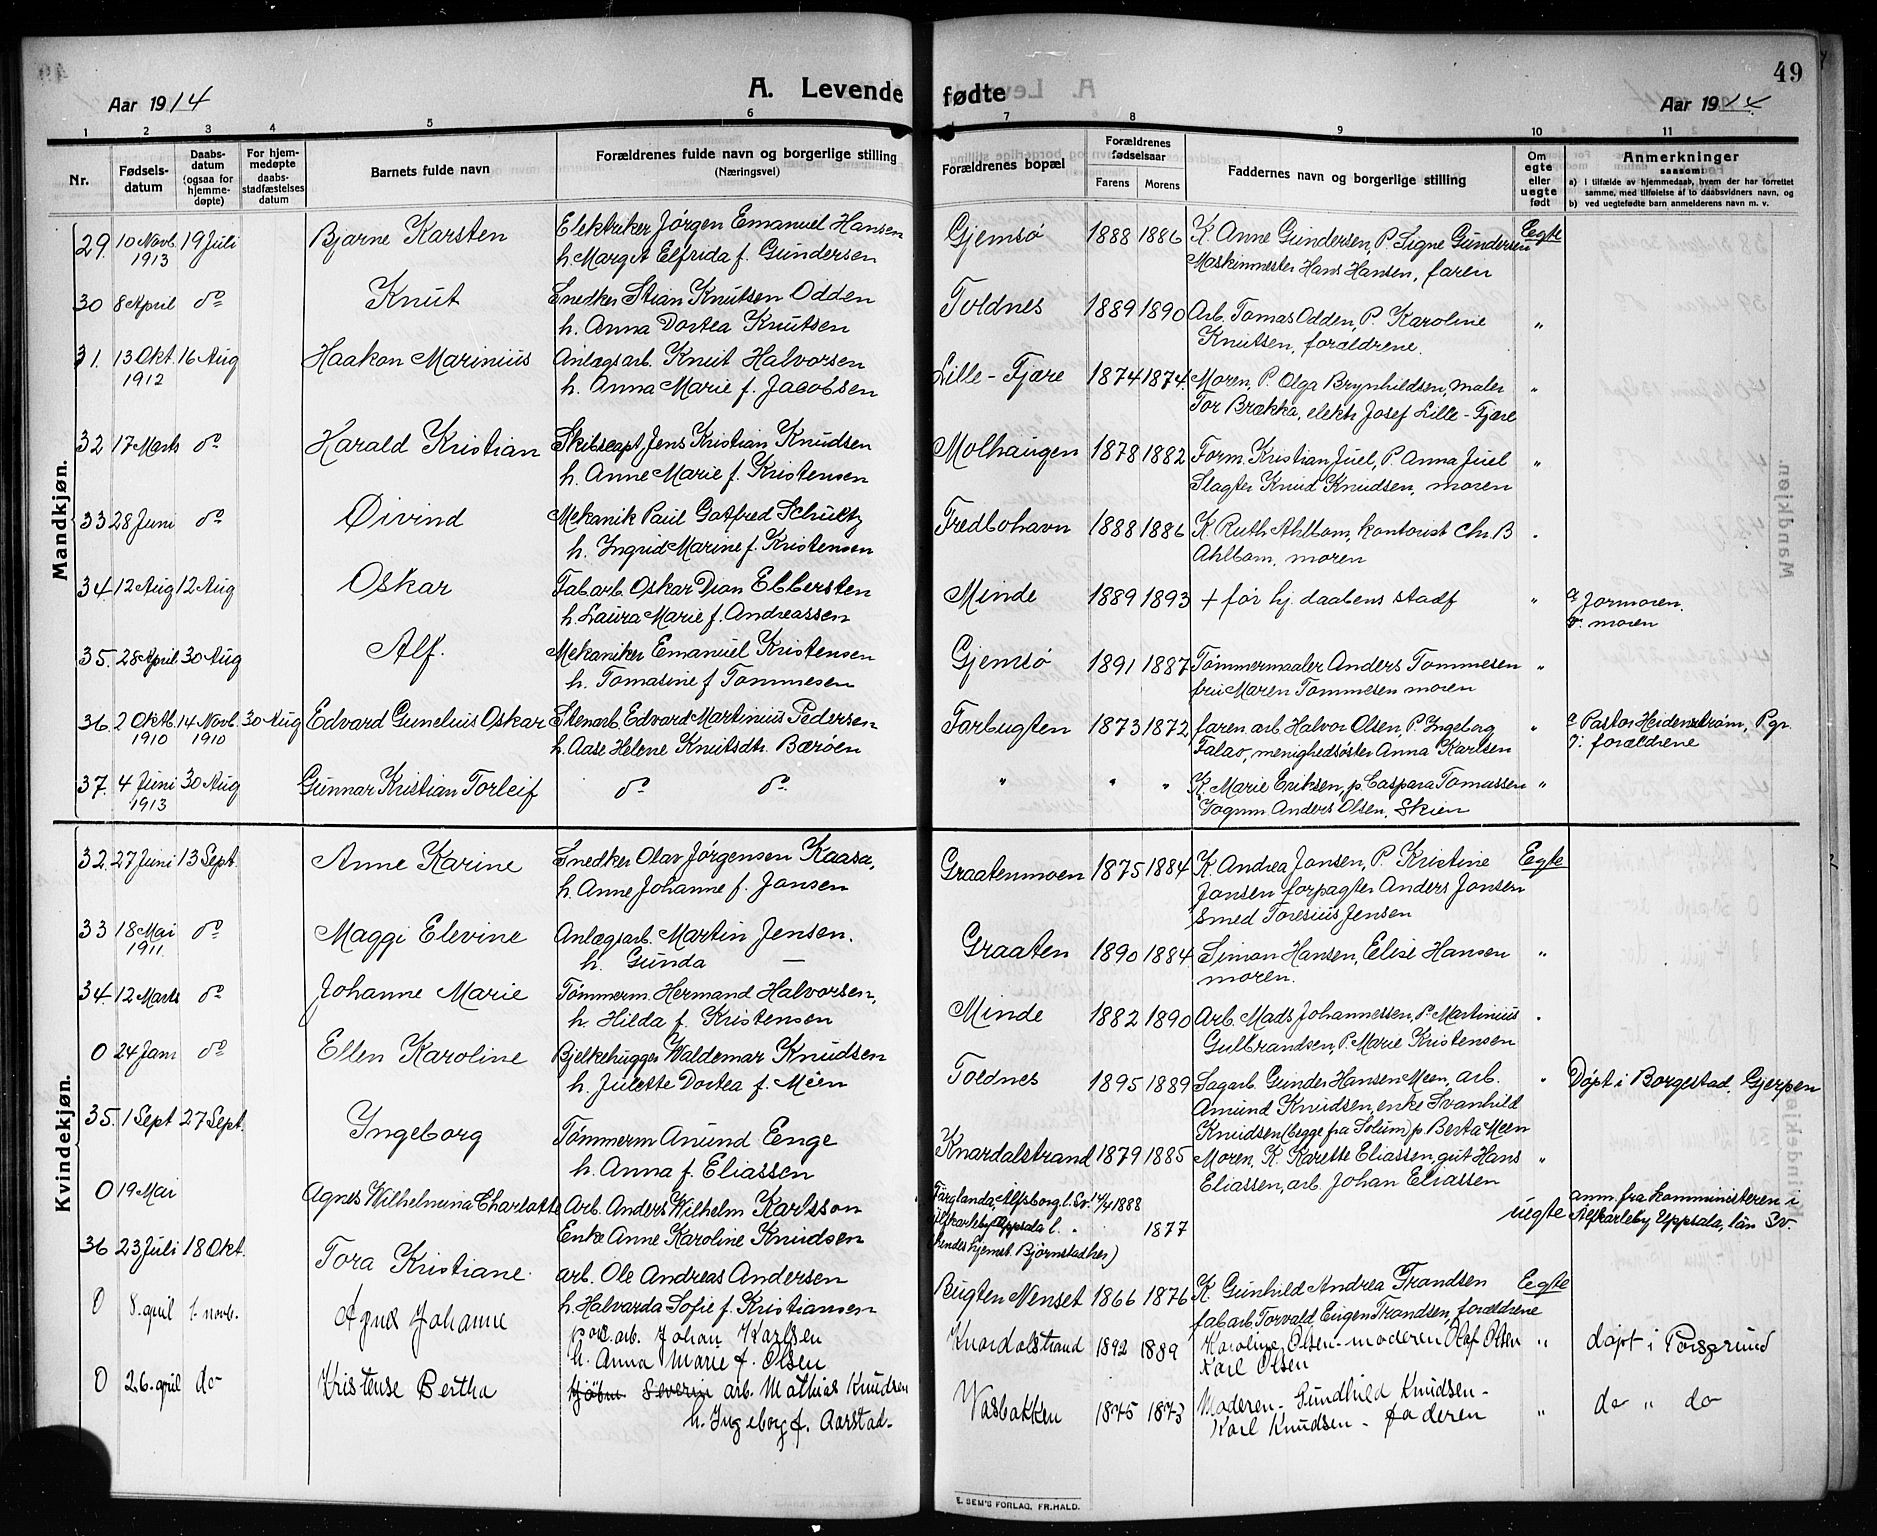 49
A. Levende fødte
Aar 1914
Aar 1914
1 2 3 4 5 6 7 8 9 10 11
Nr.
Fødsels-
datum
Daabs-
datum
(ogsaa for
hjemme-
døpte)
For hjem-
medøpte
daabs-
stadfæstelses
datum
Barnets fulde navn
Forældrenes fulde navn og borgerlige stilling
(Næringsvei)
Forældrenes bopæl
Forældrenes
fødselsaar
Farens Morens
Faddernes navn og borgerlige stilling
Om
egte
eller
uegte
født
Anmerkninger
saasom:
a) i tilfælde av hjemmedaab, hvem der har forrettet
samme, med tilføielse af to daabsvidners navn, og
b) ved uegtefødte barn anmelderens navn m. v.
Mandkjøn.
29. 10 Novb. 19 Juli Bjarne Karsten Elektriker Jørgen Emanuel Hansen Gjemsø 1888 1886 K. Anne Gundersen, P. Signe Gundersen Eegte
1913 h. Margit Elfrida f. Gundersen Maskinmester Hans Hansen, faren
30 8 April do Knut Snedker Stian Knutsen Odden Toldnes 1889 1890 Arb. Tomas Odden, P. Karoline "
h. Anna Dortea Knutsen Knutsen, forældrene.
31. 13 Okt. 16 Aug Haakon Marinius Anlægsarb. Knut Halvorsen Lille-Fjære 1874 1874 Moren, P. Olga Brynhildsen, maler "
1912 h. Anna Marie f. Jacobsen Tor Brækka, elektr Josef Lille-Fjære
32 17 Marts do Harald Kristian Skibscapt Jens Kristian Knudsen Molhaugen 1878 1882 Form. Kristian Juel, P. Anna Juel "
h. Anne Marie f. Kristensen Slagter Knud Knudsen, moren
33 28 Juni do Øivind Mekanik Paul Gotfred Schultz Fredbohavn 1888 1886 K. Ruth Ahlbom, kontorist Chr. B "
h. Ingrid Marine f. Kristensen Ahlbom, moren
34. 12 Aug 12 Aug Oskar Fabarb. Oskar Dian Ebbersten Minde 1889 1893 + før hj. daabens stadf " a Jormoren.
h. Laura Marie f. Andreassen moren
35. 28 April 30 Aug Alf. Mekaniker Emanuel Kristensen Gjemsø 1891 1887 Tømmermaaler Anders Tommesen "
h. Tomasine f Tommesen fru Maren Tommesen moren
36. 2 Oktb. 14 Novb. 30 Aug Edvard Gunelius Oskar Stenarb. Edvard Martinius Pedersen Torbugten 1873 1872 faren arb. Halvor Olsen, P. Ingeborg " a Pastor Heidenstrøm, P.gr
1910 1910 h. Aase Helene Knutsdtr. Bærøen Falao, menighedsøster Anna Karlsen forældrene
37. 4 Juni 30 Aug Gunnar Kristian Torleif do do " " " K. Marie Eriksen, p. Caspara Tomassen "
1913 Anders Olsen, Skien
Kvindekjøn.
32. 27 Juni 13 Sept. Anne Karine Snedker Olav Jørgensen Kaasa, Graatenmoen 1875 1884 K. Andrea Jansen, P. Kristine Eegte
h. Anne Johanne f. Jansen Jansen forpagter Anders Jansen
Smed Toresius Jensen
33 18 Mai do Maggi Elevine Anlægsarb. Martin Jensen. Graaten 1890 1884 Simon Hansen, Elise Hansen "
1911. h. Gunda — moren.
34. 12 Marts do Johanne Marie Tømmerm. Hermand Halvorsen, Minde 1882 1890 Arb. Mads Johannessen, P. Martinius "
h. Hilda f. Kristensen Gulbrandsen, P. Marie Kristensen
0 24 Jan do Ellen Karoline Bjelkehugger Waldemar Knudsen Toldnes 1895 1889 Sagarb. Gunder Hansen Meen, arb. " Døpt i Borgestad, Gjerpen
h. Julette Dortea f. Meen Amund Knudsen, enke Svanhild
Knudsen (begge fra Solum) p. Berta Meen
35. 1 Sept 27 Sept. Ingeborg Tømmerm Anund Eenge Knardalstrand 1879 1885 Moren, K. Karette Eliassen, gut Hans "
h. Anna f. Eliassen Eliassen, arb. Johan Eliassen
0 19 Mai Agnes Wilhelmina Charlotte Arb. Anders Wilhelm Karlsson Färglanda, Älfsborg l. Sv. 14/4 1888 uegte anm. fra Komministeren i
Enke Anne Karoline Knudsen Älfkarleby Uppsala l. 1877 Älfkarleby Uppsala, län Sv.
Bjørnstad her)
36 23 Juli 18 Okt. Tora Kristiane arb. Ole Andreas Andersen Bugten Menset 1866 1876 K. Gunhild Andrea Trandsen Eegte
h. Halvarda Sofie f. Kristiansen fabarb. Torvald Eugen Trandsen, forældrene
0 8. april 1. novb. Agnes Johanne arb. Johan Karlsen Knardalstrand 1892 1889 Karoline Olsen - moderen Olaf Olsen " døpt i Porsgrund
h. Anna Marie f. Olsen Karl Olsen
0 26. april do Kristense Bertha Severin arb. Mathias Knudsen Vasbakken 1875 1873 Moderen - Gundhild Knudsen - " do " do
h. Ingeborg f. Aarstad - Karl Knudsen - faderen
E. SEM'S FORLAG, FR.HALD.